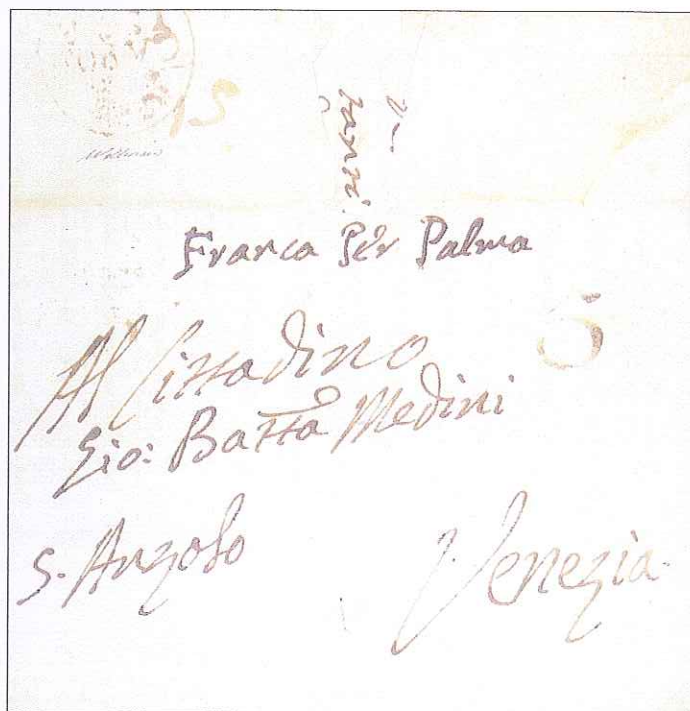 Franca Per Palma
Al Cittadino
Gio: Batta Medini
S. Anzolo
Venezia.